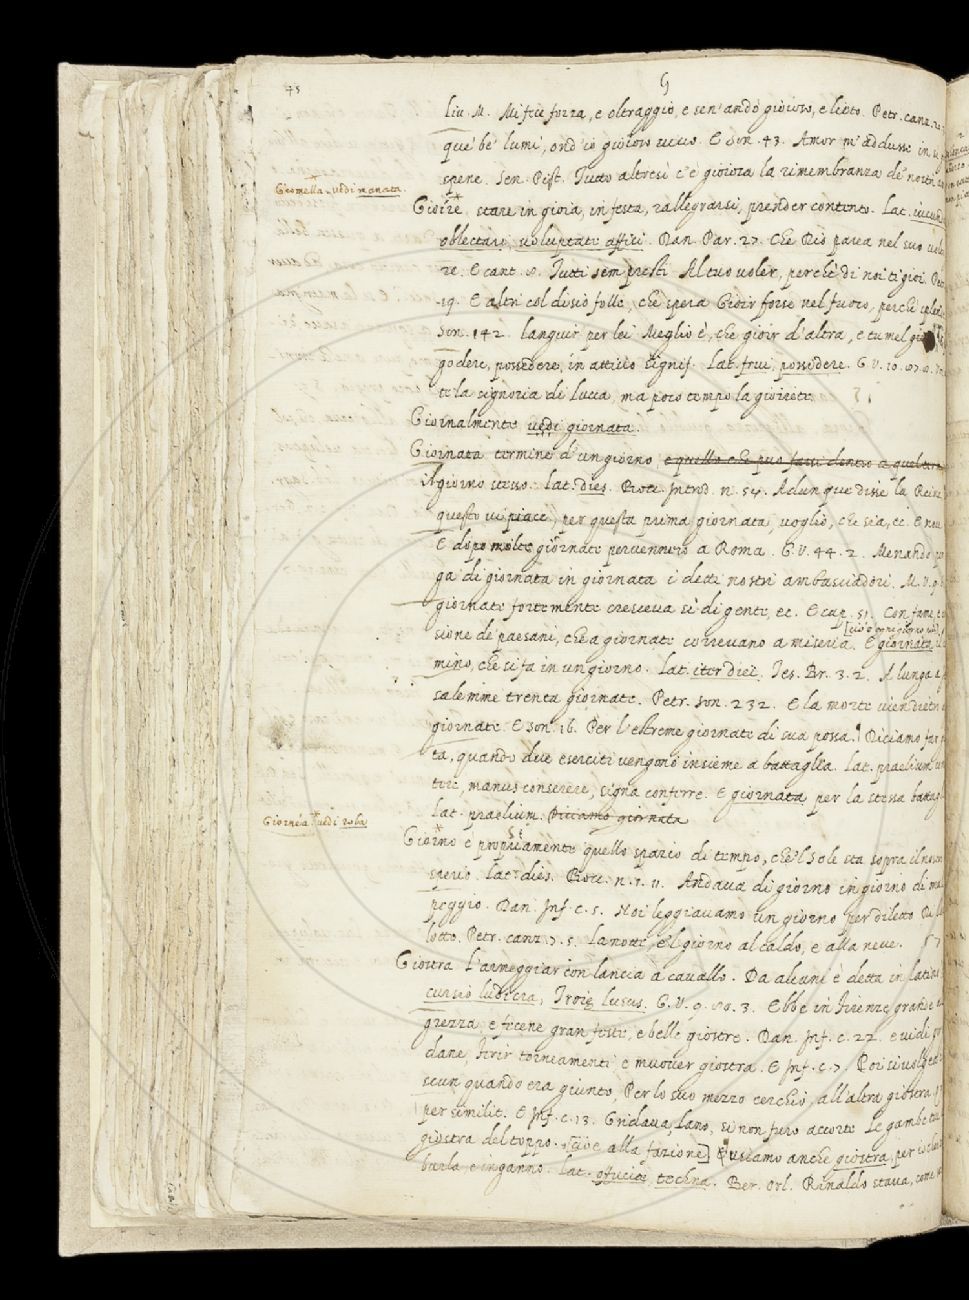 45
G
Liv. M. Mi fece forza, e oltraggio, e sen' andò gioioso, e lieto. Petr. canz.
que' be' lumi, ond' io gioioso vivo. E son. 43. Amor m' addusse in
spene. Sen. Pist. Tutto altresì c' è gioiosa la rimembranza de' nostri
Giomella. vedi manata.
Gioire. stare in gioia, in festa, rallegrarsi, prender contento. Lat.
oblectari, voluptate affici. Dan. Par. 27. Che Dio parea nel suo
re. E cant. 8. Tutti sem presti Al tuo voler, perchè di noi ti gioi.
19. E altri col disio folle, che spera Gioir forse nel fuoco, perchè
Son. 142. languir per lei Meglio è, che gioir d' altra, e tu mel
godere, possedere, in attivo signif. Lat. frui, possidere. G. V. 10.
te la signoria di Lucca, ma poco tempo la gioirete.
Giornalmente vedi giornata.
Giornata termine d' un giorno, e quello che può farsi dentro a quel
il giorno stesso. Lat. dies. Bocc. Introd. n. 54. Adunque disse la Reina
questo vi piace, per questa prima giornata, voglio, che sia, ec. E nov.
E dopo molte giornate pervennero a Roma. G. V. 44. 2. Menando
ga di giornata in giornata i detti nostri ambasciadori. M. V. 9.
giornate fortemente cresceva sì di gente, ec. E cap. 51. Con fame,
sione de' paesani, che a giornate correvano a miseria. E giornata
mino, che si fa in un giorno. Lat. iter diei. Tes. Br. 3. 2. A lunga
salemme trenta giornate. Petr. son. 232. E la morte vien dietro
giornate. E son. 16. Per l' estreme giornate di sua possa. Diciamo far
ta, quando due eserciti vengono insieme a battaglia. Lat. praelium
manus conserere, signa conferre. E giornata per la stessa
Lat. praelium. Diciamo giornata
Giornea vedi roba
Giorno è propiamente quello spazio di tempo, che 'l Sole sta sopra il
sperio. Lat. dies. Bocc. n. 1. 11. Andava di giorno in giorno di
peggio. Dan. Inf. c. 5. Noi leggiavamo un giorno per diletto
lotto. Petr. canz. 7. 5. La notte, e 'l giorno al caldo, e alla neve.
Giostra L' armeggiar con lancia a cavallo. Da alcuni è detta in latino
cursio ludicra, Troiæ lusus. G. V. 9. 80. 3. Ebbe in Firenze grande
grezza, e fecene gran feste, e belle giostre. Dan. Inf. c. 22. e vidi
dane, ferir torneamenti, e muover giostra. E Inf. c. 7. Poi si volgea
scun quando era giunto, Per lo suo mezzo cerchio, all' altra giostra
per similit. E Inf. c. 13. Gridava, Lano, sì non furo accorte Le gambe
giostra del toppo. [cioè alla fazione] Usiamo anche giostra, per
burla, e inganno. Lat. officiae, techna. Ber. Orl. Rinaldo stava, come